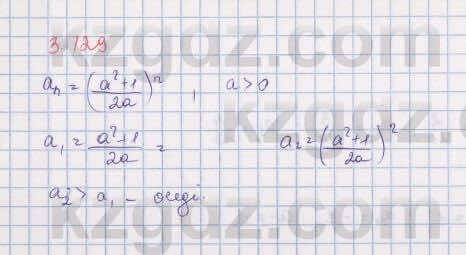 3.129
aₙ = ((a²+1)/(2a))ⁿ, a>0
a₁ = (a²+1)/(2a) = a₂ = ((a²+1)/(2a))²
a₂ > a₁ – өседі.
kzgdz.com
kzgdz.com
kzgdz.com